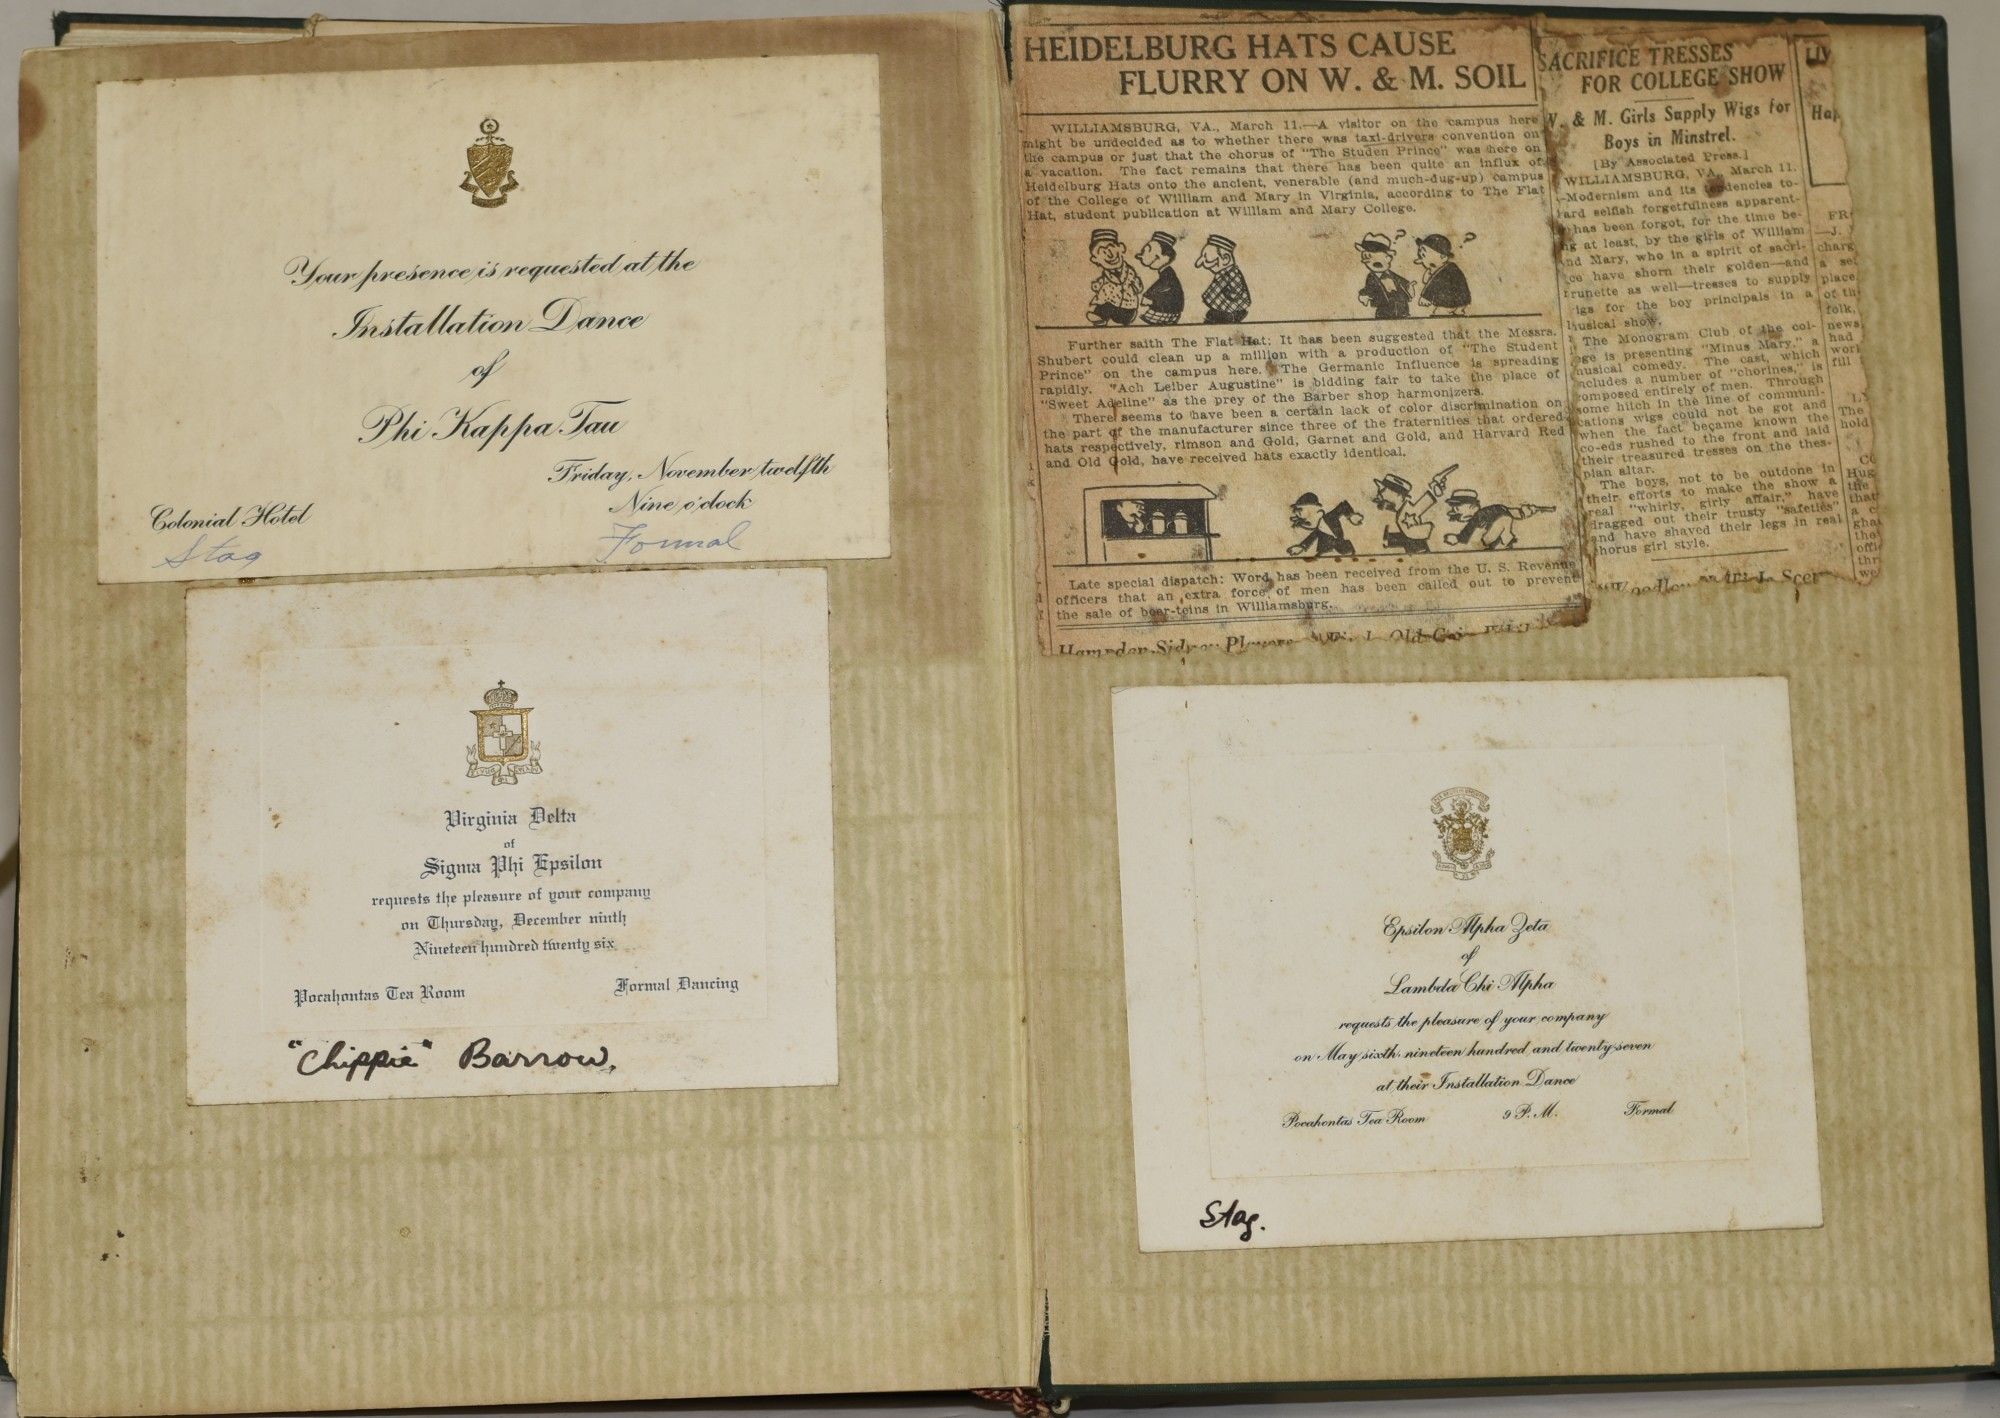 Your presence is requested at the
Installation Dance
of
Phi Kappa Tau
Friday, November twelfth
Nine o'clock
Colonial Hotel
Stag
Formal
Virginia Delta
of
Sigma Phi Epsilon
requests the pleasure of your company
on Thursday, December ninth
Nineteen hundred twenty six
Pocahontas Tea Room
Formal Dancing
"Chippie" Barrow.
HEIDELBURG HATS CAUSE
FLURRY ON W. & M. SOIL
WILLIAMSBURG, VA., March 11.—A visitor on the campus here
might be undecided as to whether there was taxi-drivers convention on
the campus or just that the chorus of "The Studen Prince" was here on
a vacation. The fact remains that there has been quite an influx of
Heidelburg Hats onto the ancient, venerable (and much-dug-up) campus
of the College of William and Mary in Virginia, according to The Flat
Hat, student publication at William and Mary College.
Further saith The Flat Hat: It has been suggested that the Messrs.
Shubert could clean up a million with a production of "The Student
Prince" on the campus here. The Germanic Influence is spreading
rapidly. "Ach Leiber Augustine" is bidding fair to take the place of
"Sweet Adeline" as the prey of the Barber shop harmonizers.
There seems to have been a certain lack of color discrimination on
the part of the manufacturer since three of the fraternities that ordered
hats respectively, rimson and Gold, Garnet and Gold, and Harvard Red
and Old Gold, have received hats exactly identical.
Late special dispatch: Word has been received from the U. S. Revenue
officers that an extra force of men has been called out to prevent
the sale of beer-teins in Williamsburg.
Hampden-Sidney Players
SACRIFICE TRESSES
FOR COLLEGE SHOW
W. & M. Girls Supply Wigs for
Boys in Minstrel.
[By Associated Press.]
WILLIAMSBURG, VA., March 11.
—Modernism and its tendencies to-
ard selfish forgetfulness apparent-
has been forgot, for the time be-
ng at least, by the girls of William
nd Mary, who in a spirit of sacri-
ce have shorn their golden—and
runette as well—tresses to supply
igs for the boy principals in a
usical show.
The Monogram Club of the col-
ege is presenting "Minus Mary," a
usical comedy. The cast, which
ncludes a number of "chorines," is
omposed entirely of men. Through
some hitch in the line of communi-
cations wigs could not be got and
when the fact became known the
co-eds rushed to the front and laid
their treasured tresses on the thes-
pian altar.
The boys, not to be outdone in
their efforts to make the show a
real "whirly, girly affair," have
dragged out their trusty "safeties"
and have shaved their legs in real
horus girl style.
LIV
Ha
FR
—J.
charg
a se
place
of th
folk,
news
had
worl
fill
The
hold
Hug
the
that
a c
gha
the
offi
thr
we
Epsilon Alpha Zeta
of
Lambda Chi Alpha
requests the pleasure of your company
on May sixth, nineteen hundred and twenty-seven
at their Installation Dance
Pocahontas Tea Room
9 P. M.
Formal
Stag.